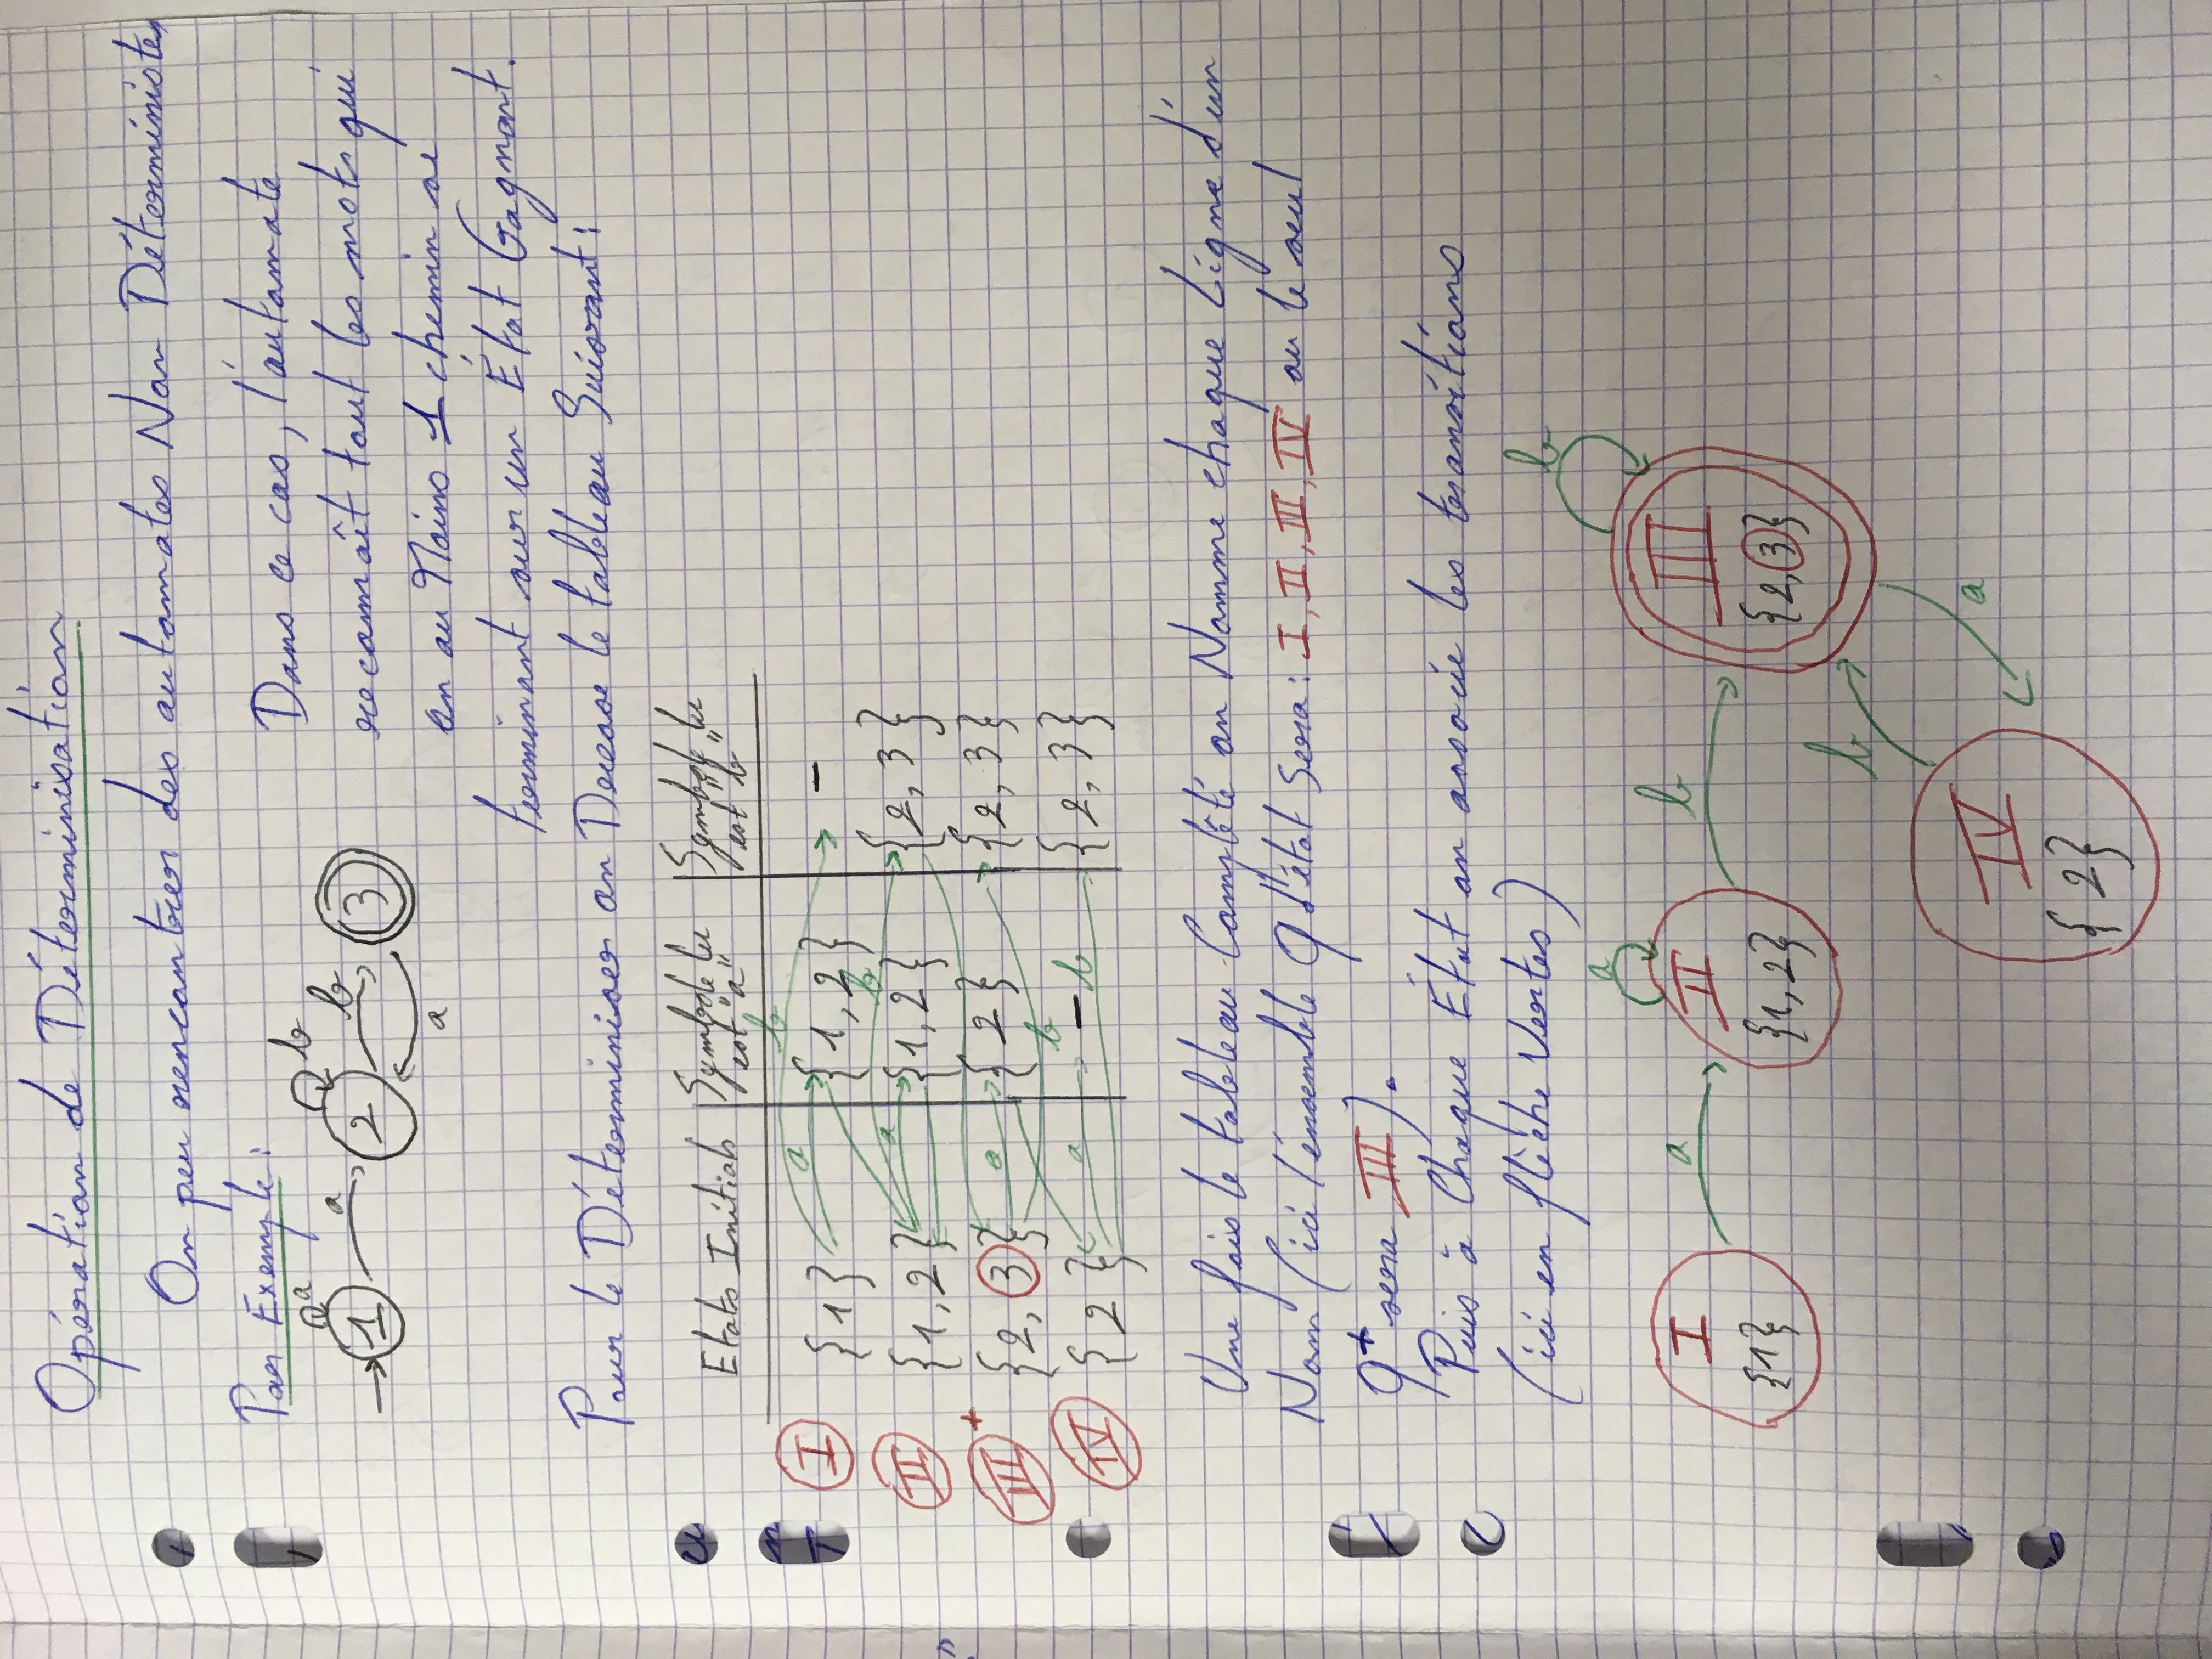 Opération de Déterminisation
On peu rencontrer des automates Non Déterministes
Par Exemple :
a
b
a
b
1
2
3
a
Dans ce cas, l'automate
reconnaît tout les mots qui
on au Moins 1 chemin se
terminant sur un État Gagnant.
Pour le Déterminiser on Dresse le tableau Suivant :
Etats Initials
Symbole lu
est "a"
Symbole lu
est "b"
I {1} a {1, 2} b -
II {1, 2} a {1, 2} b {2, 3}
III + {2, 3} a {2} b {2, 3}
IV {2} a - b {2, 3}
Une fois le tableau Complété on Nomme chaque Ligne d'un
Nom (ici l'énsemble Q d'état Sera : I, II, III, IV ou le seul
Q+ sera III).
Puis à Chaque État on associe les transitions
(ici en flèche Vertes)
b
a
I
a
II
b
III
{1}
{1, 2}
{2, 3}
b
a
IV
{2}